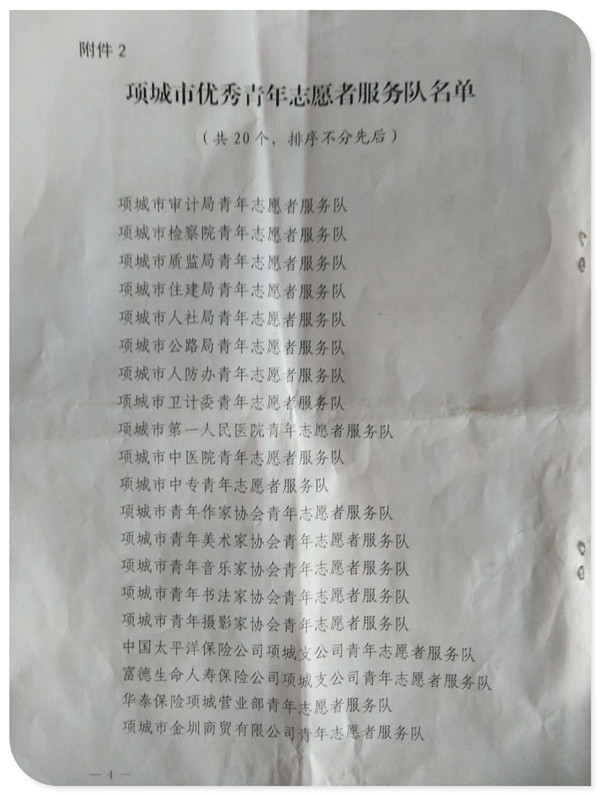 附件2
项城市优秀青年志愿者服务队名单
（共20个，排序不分先后）
项城市审计局青年志愿者服务队
项城市检察院青年志愿者服务队
项城市质监局青年志愿者服务队
项城市住建局青年志愿者服务队
项城市人社局青年志愿者服务队
项城市公路局青年志愿者服务队
项城市人防办青年志愿者服务队
项城市卫计委青年志愿者服务队
项城市第一人民医院青年志愿者服务队
项城市中医院青年志愿者服务队
项城市中专青年志愿者服务队
项城市青年作家协会青年志愿者服务队
项城市青年美术家协会青年志愿者服务队
项城市青年音乐家协会青年志愿者服务队
项城市青年书法家协会青年志愿者服务队
项城市青年摄影家协会青年志愿者服务队
中国太平洋保险公司项城支公司青年志愿者服务队
富德生命人寿保险公司项城支公司青年志愿者服务队
华泰保险项城营业部青年志愿者服务队
项城市金圳商贸有限公司青年志愿者服务队
— 4 —